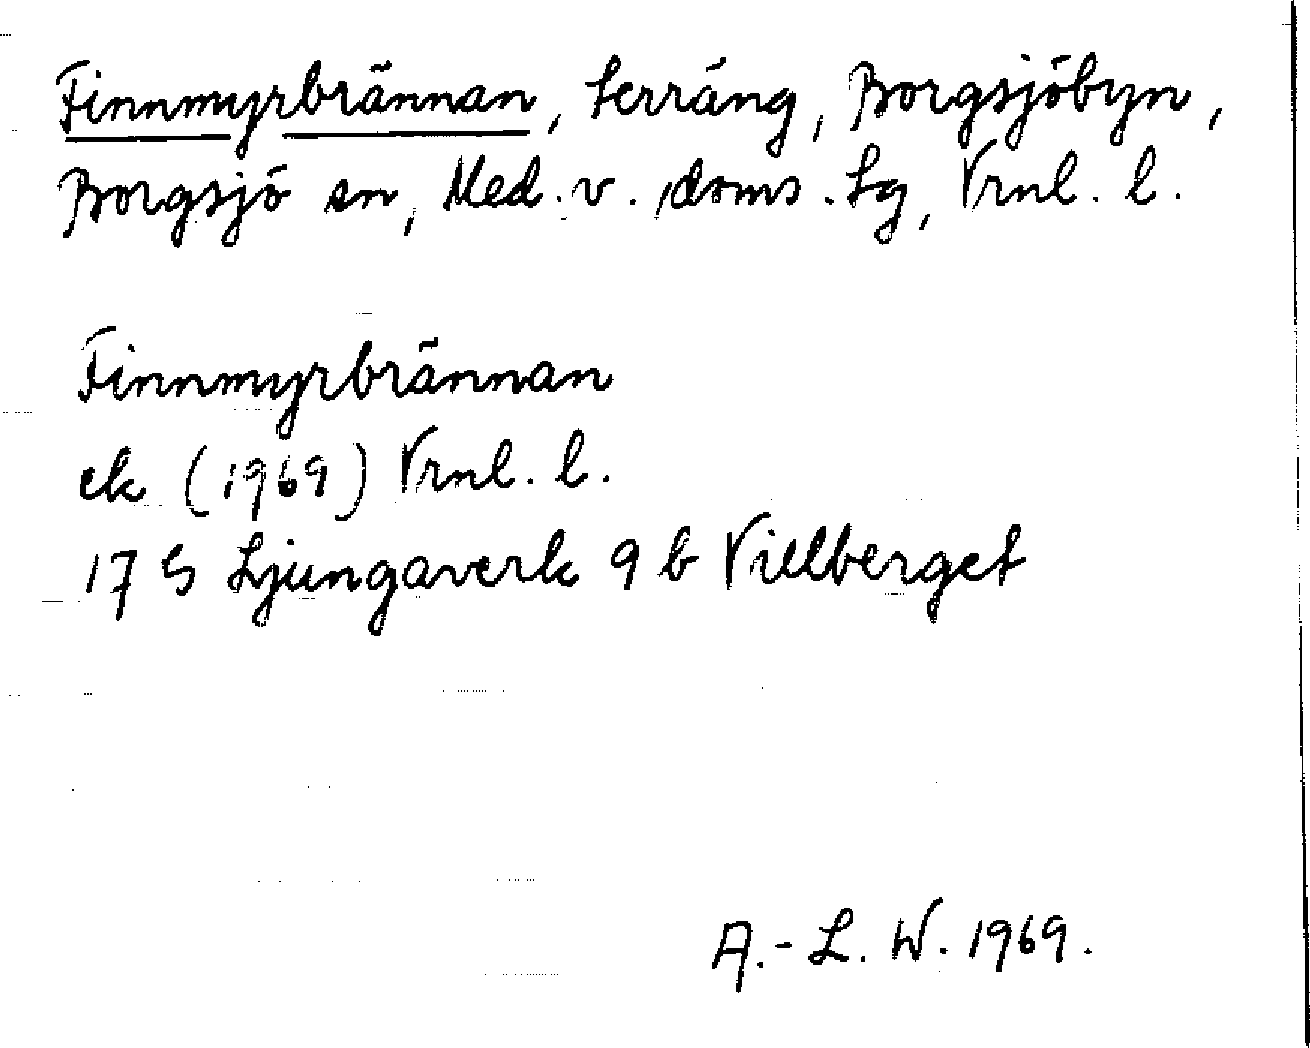 Finnmyrbrännan, terräng, Borgsjöbyn,
Borgsjö sn, Med. v. doms. tg, Vrnl. l.
Finnmyrbrännan
ek (1969) Vrnl. l.
17 G Ljungaverk 9 b Villberget
A.-L. W. 1969.